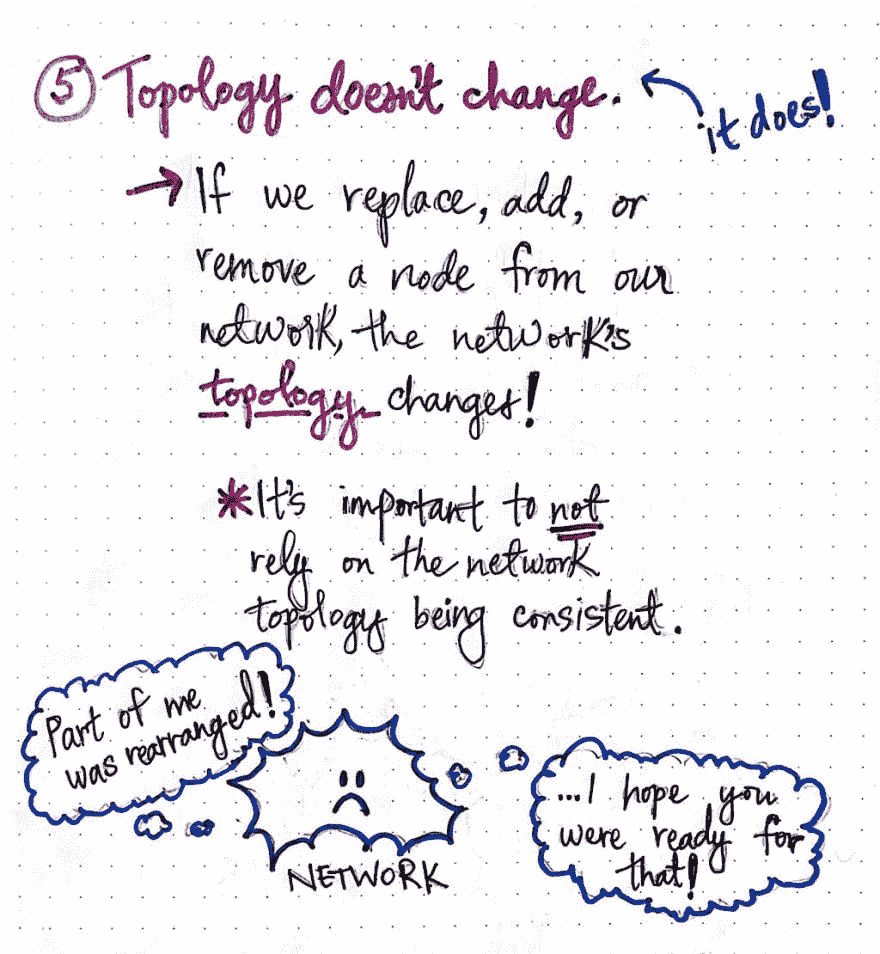 5 Topology doesn't change.
it does!
→ If we replace, add, or
remove a node from our
network, the network's
topology changes!
* It's important to not
rely on the network
topology being consistent.
Part of me
was rearranged!
...I hope you
were ready for
that!
NETWORK